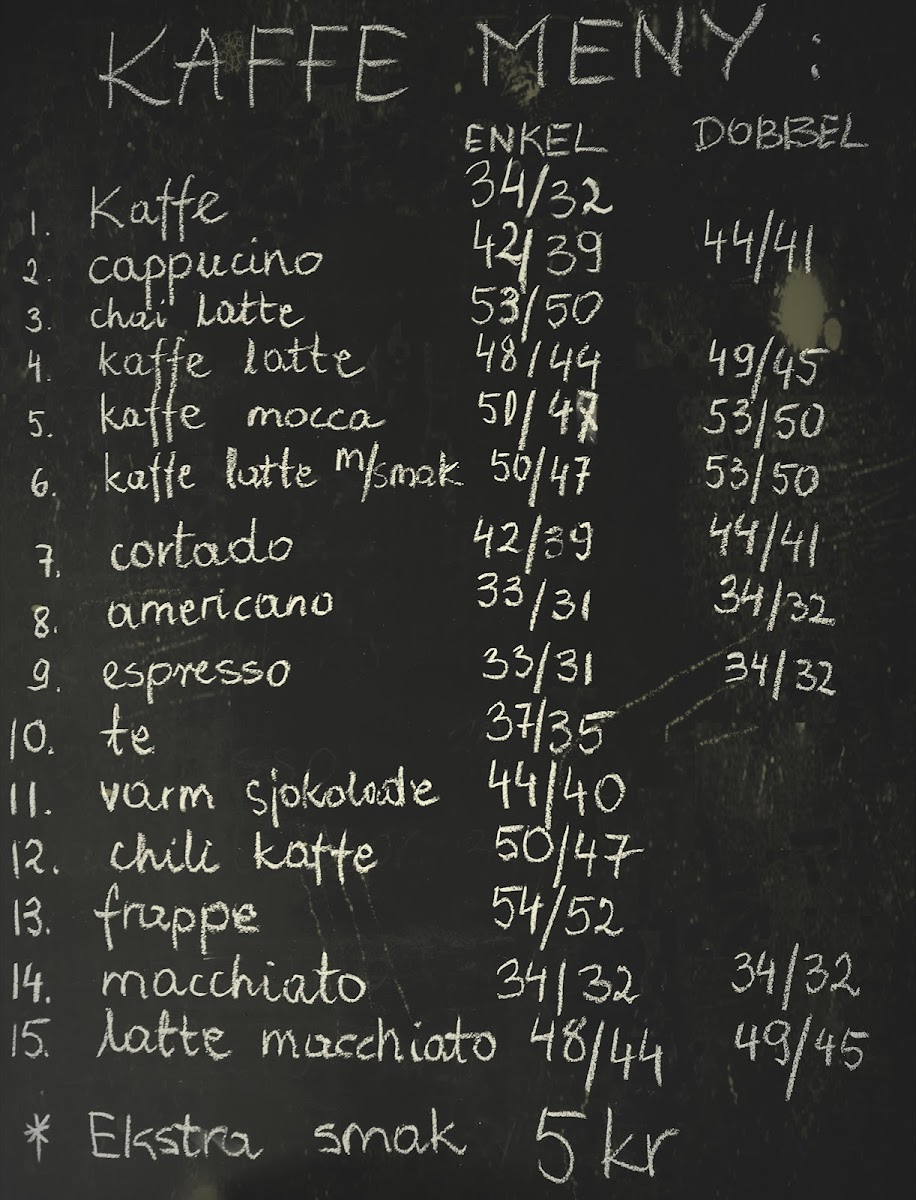 KAFFE MENY :
ENKEL DOBBEL
1. Kaffe 34/32
2. cappucino 42/39 44/41
3. chai latte 53/50
4. kaffe latte 48/44 49/45
5. kaffe mocca 50/47 53/50
6. kaffe latte m/smak 50/47 53/50
7. cortado 42/39 44/41
8. americano 33/31 34/32
9. espresso 33/31 34/32
10. te 37/35
11. varm sjokolade 44/40
12. chili kaffe 50/47
13. frappe 54/52
14. macchiato 34/32 34/32
15. latte macchiato 48/44 49/45
* Ekstra smak 5 kr